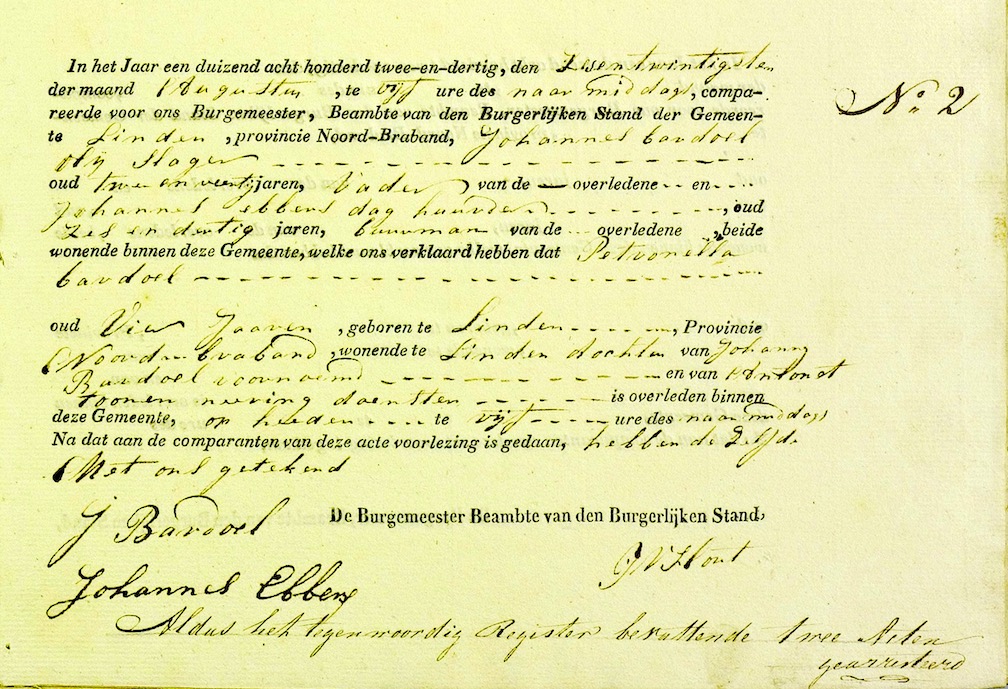 In het Jaar een duizend acht honderd twee-en-dertig, den Zesentwintigsten
der maand Augustus, te vyf ure des naar middags, compa-
reerde voor ons Burgemeester, Beambte van den Burgerlijken Stand der Gemeen-
te Linden, provincie Noord-Braband, Johannes bardoel
Slager
oud twee en veertig jaren, Vader van de overledene en
Johannes ebbers dag huurder, oud
Zes en dertig jaren, buurman van de overledene, beide
wonende binnen deze Gemeente, welke ons verklaard hebben dat Petronella
bardoel
oud Vier Jaaren, geboren te Linden, Provincie
Noord braband, wonende te Linden dochter van Johannes
Bardoel voornoemd en van
toonen neering is overleden binnen
deze Gemeente, op heeden te vijf ure des naar middags
Na dat aan de comparanten van deze acte voorlezing is gedaan, hebben de Zelfde
Met ons getekend
De Burgemeester Beambte van den Burgerlijken Stand,
J Bardoel
Johannes Ebbers
Aldus het tegenwoordig Register bevattende twee Acten
gearresteerd
No 2